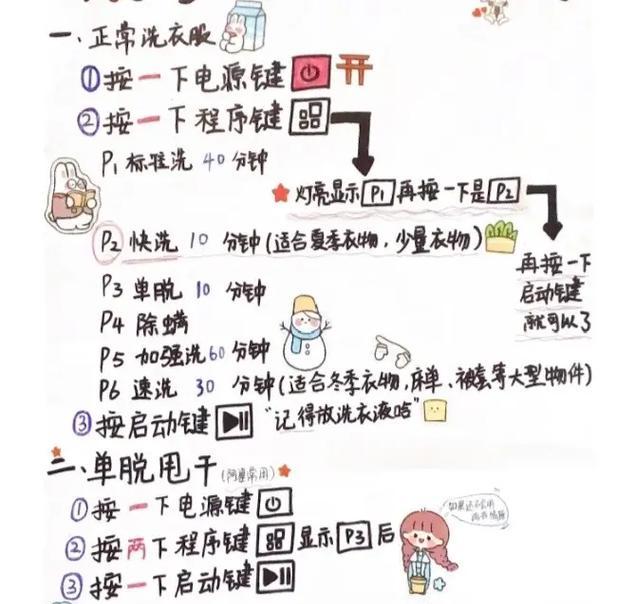 一、正常洗衣服
①按一下电源键
②按一下程序键
P1 标准洗 40 分钟
灯亮显示 P1 再按一下是 P2
P2 快洗 10 分钟(适合夏季衣物,少量衣物)
再按一下
启动键
就可以了
P3 单脱 10 分钟
P4 除螨
P5 加强洗 60 分钟
P6 速洗 30 分钟(适合冬季衣物,床单、被套等大型物件)
③按启动键 "记得放洗衣液哈"
二、单脱甩干(阿婆常用)
①按一下电源键
②按两下程序键 显示 P3 后
③按一下启动键
如果还不会用